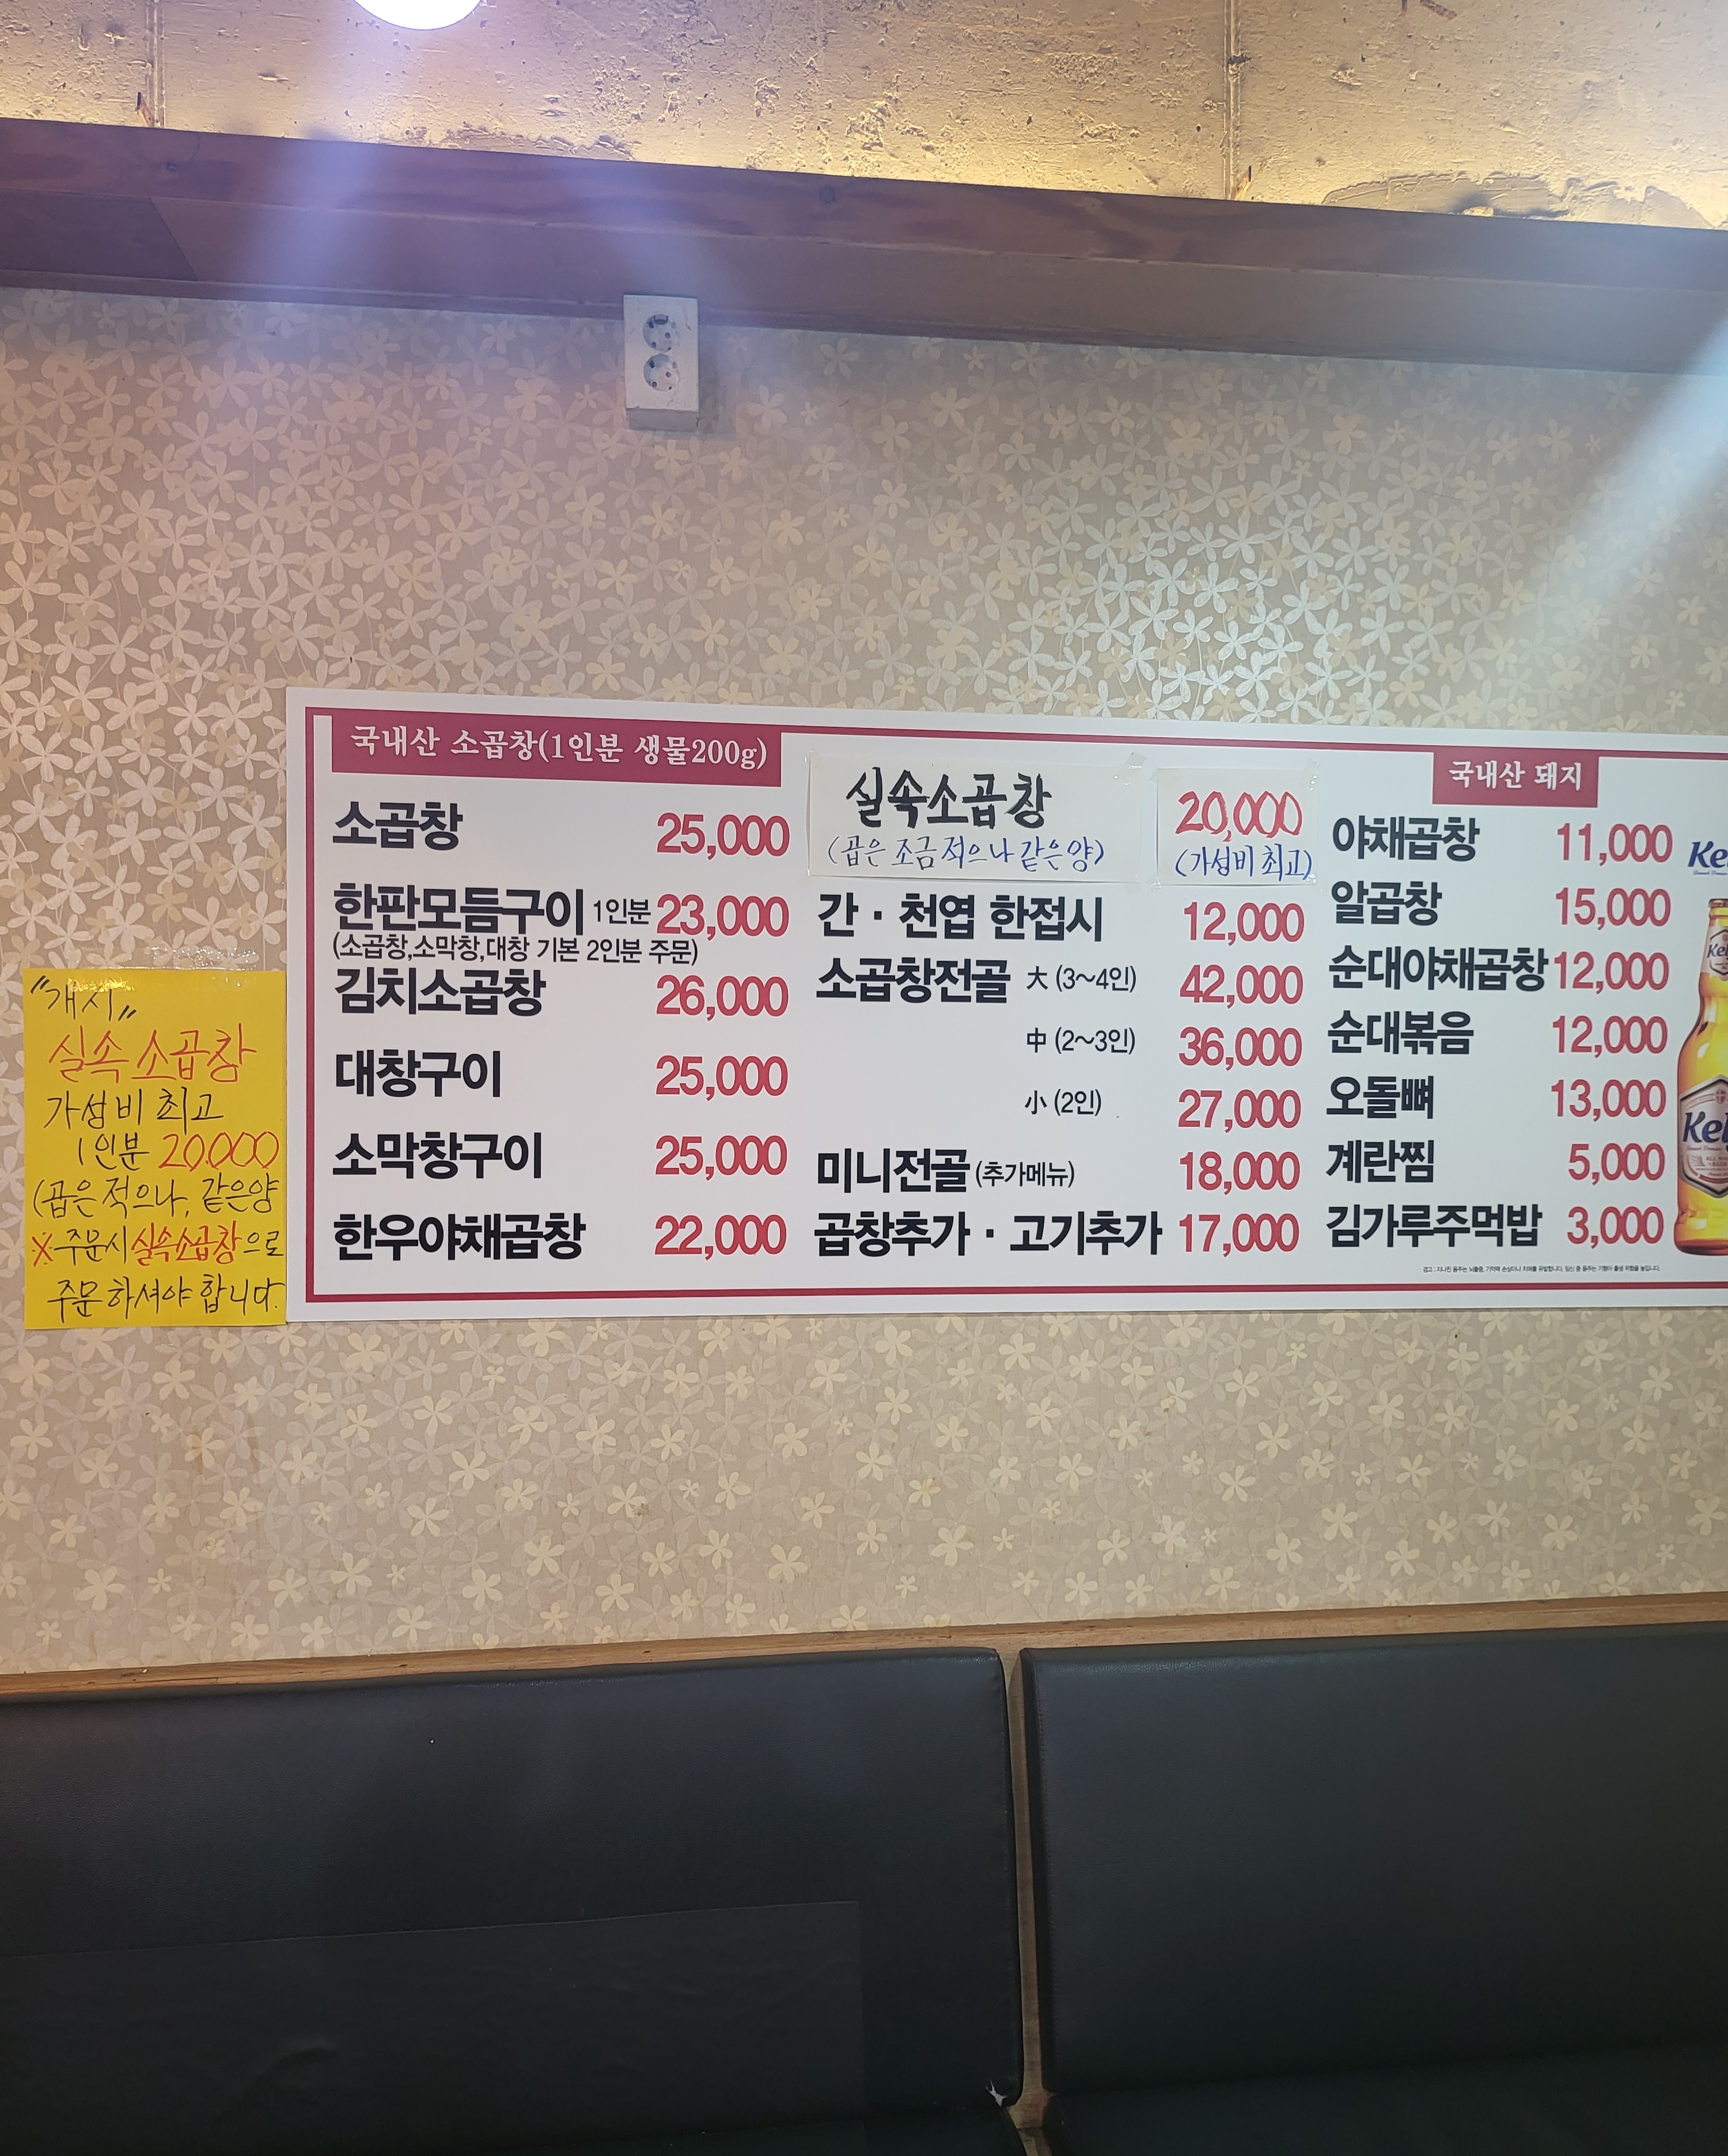 "개시"
실속소곱창
가성비 최고
1인분 20,000
(곱은 적으나, 같은양
※주문시 실속소곱창으로
주문하셔야 합니다.
국내산 소곱창(1인분 생물200g)
소곱창 25,000
한판모듬구이 1인분 23,000
(소곱창,소막창,대창 기본 2인분 주문)
김치소곱창 26,000
대창구이 25,000
소막창구이 25,000
한우야채곱창 22,000
실속소곱창 20,000
(곱은 조금 적으나 같은양) (가성비 최고)
간·천엽 한접시 12,000
소곱창전골 大 (3~4인) 42,000
中 (2~3인) 36,000
小 (2인) 27,000
미니전골 (추가메뉴) 18,000
곱창추가·고기추가 17,000
국내산 돼지
야채곱창 11,000
알곱창 15,000
순대야채곱창 12,000
순대볶음 12,000
오돌뼈 13,000
계란찜 5,000
김가루주먹밥 3,000
경고 : 지나친 음주는 뇌졸중, 기억력 손상이나 치매를 유발합니다. 임신 중 음주는 기형아 출생 위험을 높입니다.
Ke
Kel
Kel